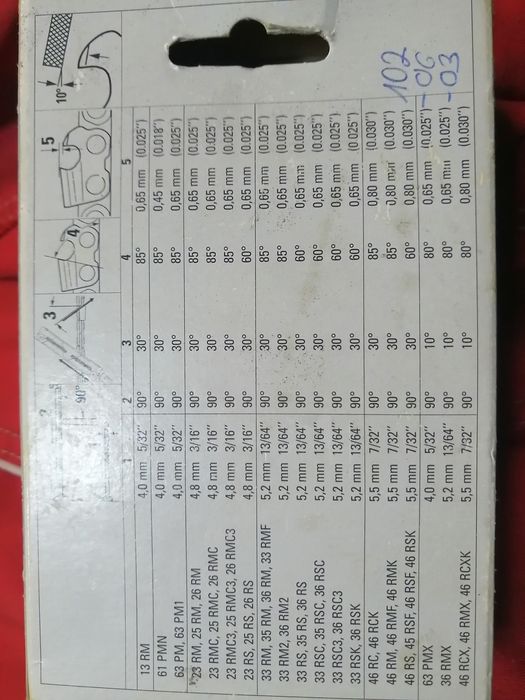 90° 3 4 5 10°
1 2 3 4 5
13 RM 4,0 mm 5/32" 90° 30° 85° 0,65 mm (0.025")
61 PMN 4,0 mm 5/32" 90° 30° 85° 0,45 mm (0.018")
63 PM, 63 PM1 4,0 mm 5/32" 90° 30° 85° 0,65 mm (0.025")
23 RM, 25 RM, 26 RM 4,8 mm 3/16" 90° 30° 85° 0,65 mm (0.025")
23 RMC, 25 RMC, 26 RMC 4,8 mm 3/16" 90° 30° 85° 0,65 mm (0.025")
23 RMC3, 25 RMC3, 26 RMC3 4,8 mm 3/16" 90° 30° 85° 0,65 mm (0.025")
23 RS, 25 RS, 26 RS 4,8 mm 3/16" 90° 30° 60° 0,65 mm (0.025")
33 RM, 35 RM, 36 RM, 33 RMF 5,2 mm 13/64" 90° 30° 85° 0,65 mm (0.025")
33 RM2, 36 RM2 5,2 mm 13/64" 90° 30° 85° 0,65 mm (0.025")
33 RS, 35 RS, 36 RS 5,2 mm 13/64" 90° 30° 60° 0,65 mm (0.025")
33 RSC, 35 RSC, 36 RSC 5,2 mm 13/64" 90° 30° 60° 0,65 mm (0.025")
33 RSC3, 36 RSC3 5,2 mm 13/64" 90° 30° 60° 0,65 mm (0.025")
33 RSK, 36 RSK 5,2 mm 13/64" 90° 30° 60° 0,65 mm (0.025")
46 RC, 46 RCK 5,5 mm 7/32" 90° 30° 85° 0,80 mm (0.030")
46 RM, 46 RMF, 46 RMK 5,5 mm 7/32" 90° 30° 85° 0,80 mm (0.030")
46 RS, 45 RSF, 46 RSF, 46 RSK 5,5 mm 7/32" 90° 30° 60° 0,80 mm (0.030")
63 PMX 4,0 mm 5/32" 90° 10° 80° 0,65 mm (0.025")
36 RMX 5,2 mm 13/64" 90° 10° 80° 0,65 mm (0.025")
46 RCX, 46 RMX, 46 RCXK 5,5 mm 7/32" 90° 10° 80° 0,80 mm (0.030")
102
-06
-03